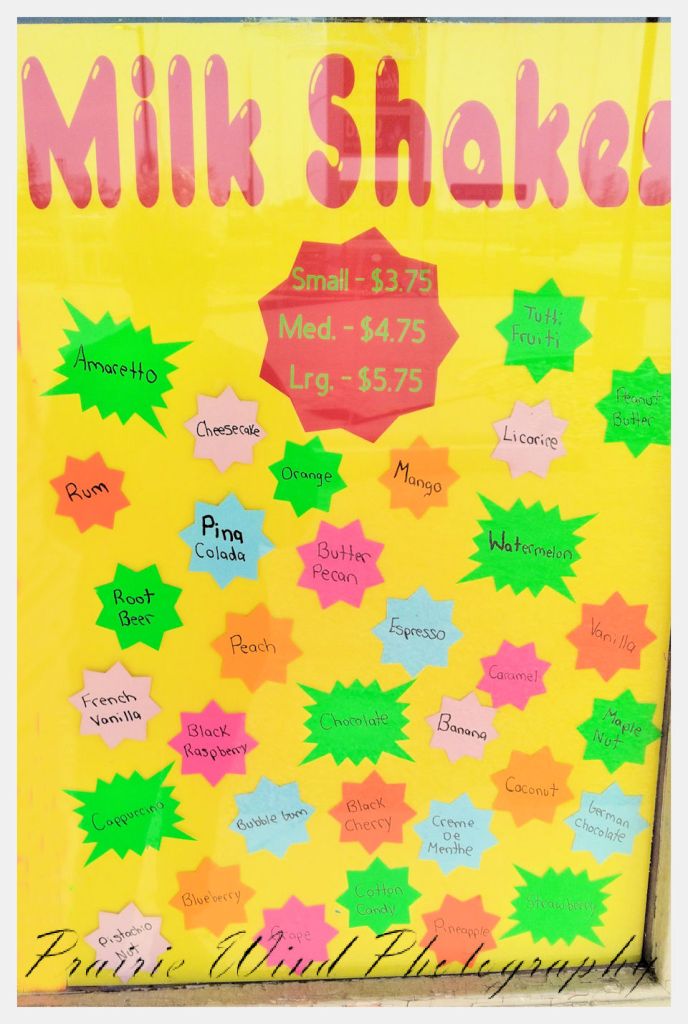 Milk Shakes
Small - $3.75
Med. - $4.75
Lrg. - $5.75
Tutti
Fruiti
Amaretto
Peanut
Butter
Cheesecake
Licorire
Orange
Mango
Rum
Pina
Colada
Butter
Pecan
Watermelon
Root
Beer
Peach
Espresso
Vanilla
Caramel
French
Vanilla
Black
Raspberry
Chocolate
Banana
Maple
Nut
Coconut
Cappuccino
Bubble Gum
Black
Cherry
Creme
De
Menthe
German
Chocolate
Blueberry
Cotton
Candy
Strawberry
Pistachio
Nut
Grape
Pineapple
Prairie Wind Photography